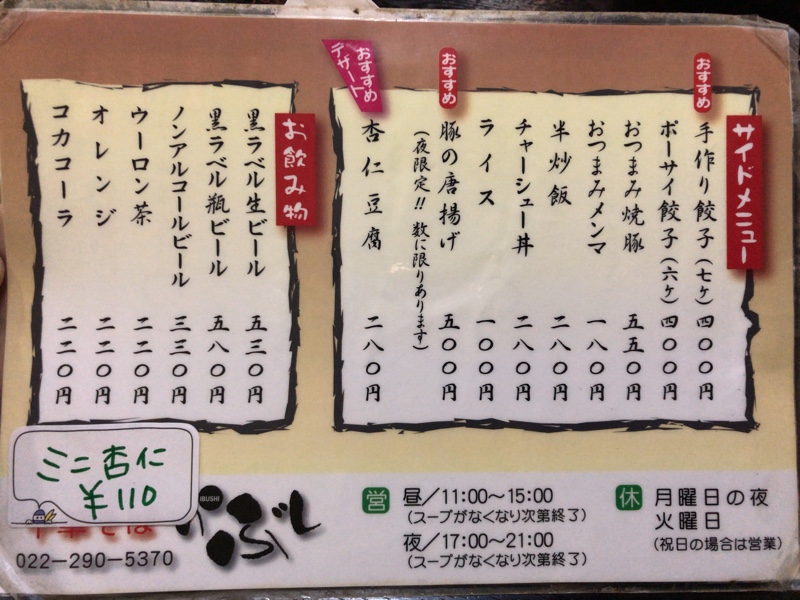 サイドメニュー
おすすめ
手作り餃子(七ヶ) 四〇〇円
ポーサイ餃子(六ヶ) 四〇〇円
おつまみ焼豚 五五〇円
おつまみメンマ 一八〇円
半炒飯 二八〇円
チャーシュー丼 二八〇円
ライス 一〇〇円
おすすめ
豚の唐揚げ 五〇〇円
(夜限定!! 数に限りあります)
おすすめ
デザート
杏仁豆腐 二八〇円
お飲み物
黒ラベル生ビール 五三〇円
黒ラベル瓶ビール 五八〇円
ノンアルコールビール 三三〇円
ウーロン茶 二二〇円
オレンジ 二二〇円
コカコーラ 二二〇円
ミニ杏仁
¥110
IBUSHI
いぶし
022-290-5370
営 昼/11:00〜15:00
(スープがなくなり次第終了)
夜/17:00〜21:00
(スープがなくなり次第終了)
休 月曜日の夜
火曜日
(祝日の場合は営業)